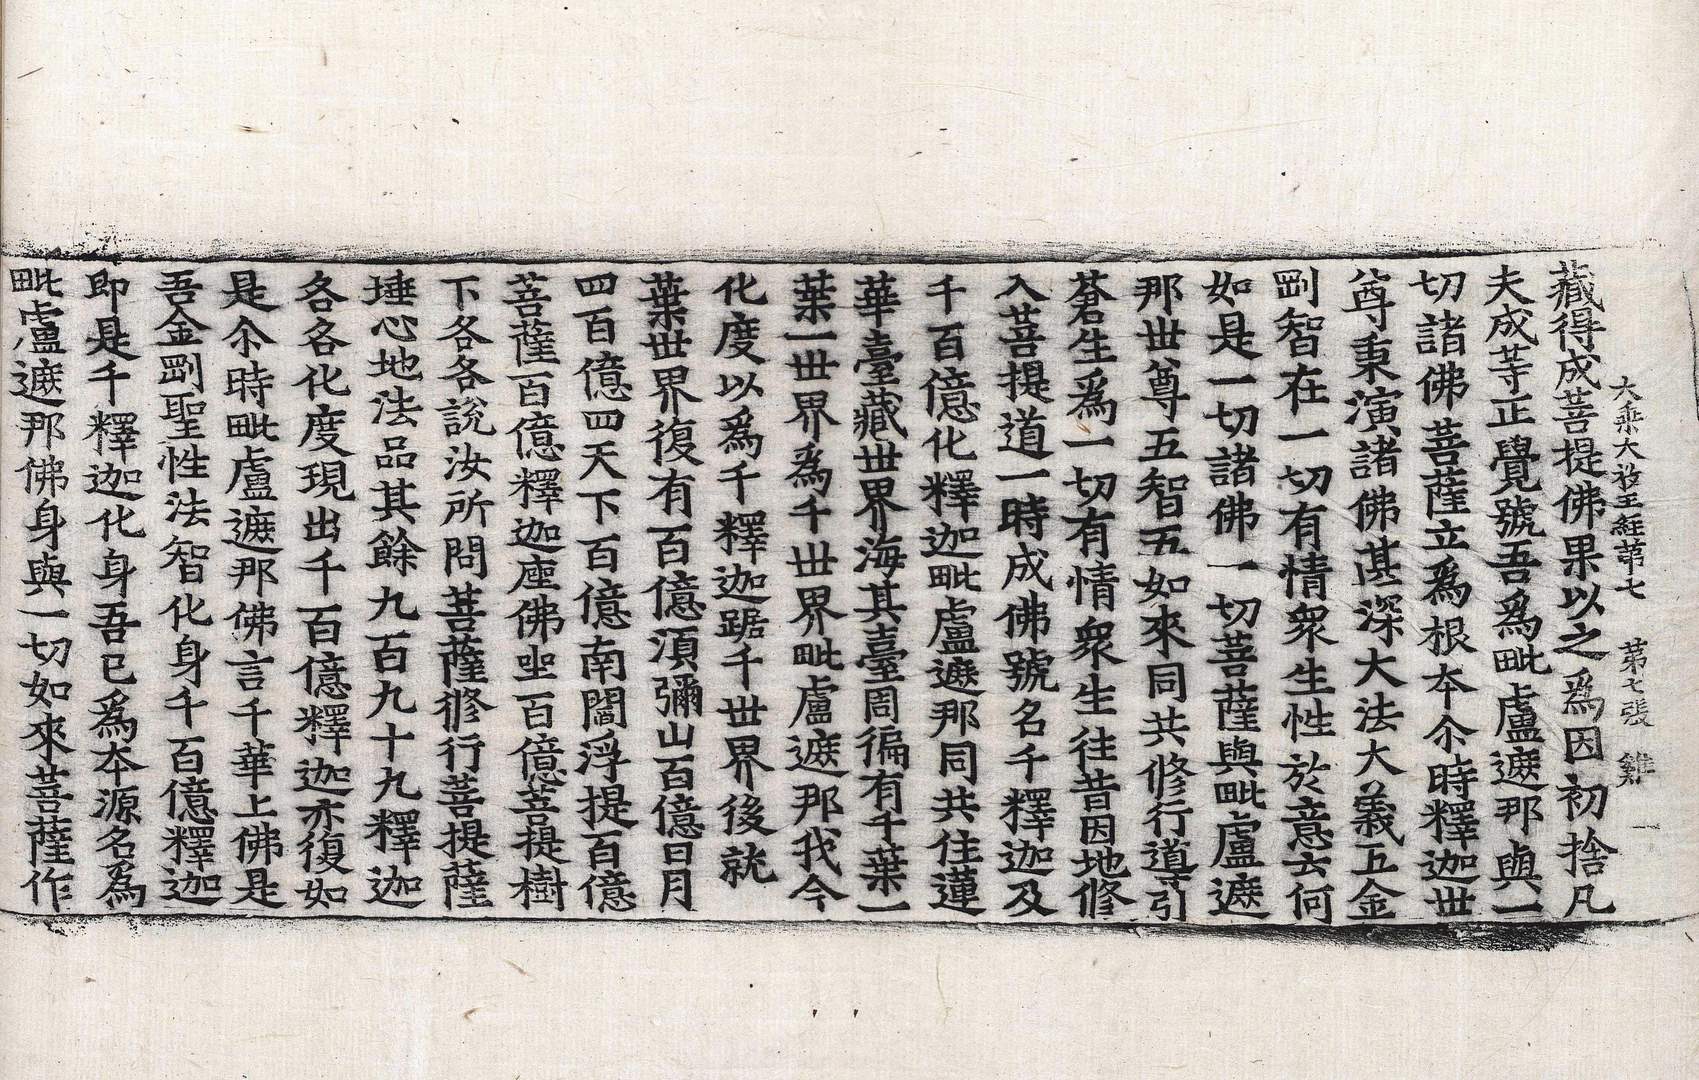 大乘大教王經第七 第七張 雞 一
藏得成菩提佛果以之爲因初捨凡
夫成䓁正覺號吾爲毗盧遮那與一
切諸佛菩薩立爲根夲尒時釋迦世
尊秉演諸佛甚深大法大義五金
剛智在一切有情衆生性於意云何
如是一切諸佛一切菩薩與毗盧遮
那世尊五智五如來同共修行導引
蒼生爲一切有情衆生往昔因地修
入菩提道一時成佛號名千釋迦及
千百億化釋迦毗盧遮那同共住蓮
華臺藏世界海其臺周徧有千葉一
葉一世界爲千世界毗盧遮那我今
化度以爲千釋迦踞千世界後就
葉世界復有百億湏彌山百億日月
四百億四天下百億南閻浮提百億
菩薩百億釋迦座佛坐百億菩提樹
下各各說汝所問菩薩修行菩提薩
埵心地法品其餘九百九十九釋迦
各各化度現出千百億釋迦亦復如
是尒時毗盧遮那佛言千華上佛是
吾金剛聖性法智化身千百億釋迦
即是千釋迦化身吾已爲夲源名爲
毗盧遮那佛身與一切如來菩薩作